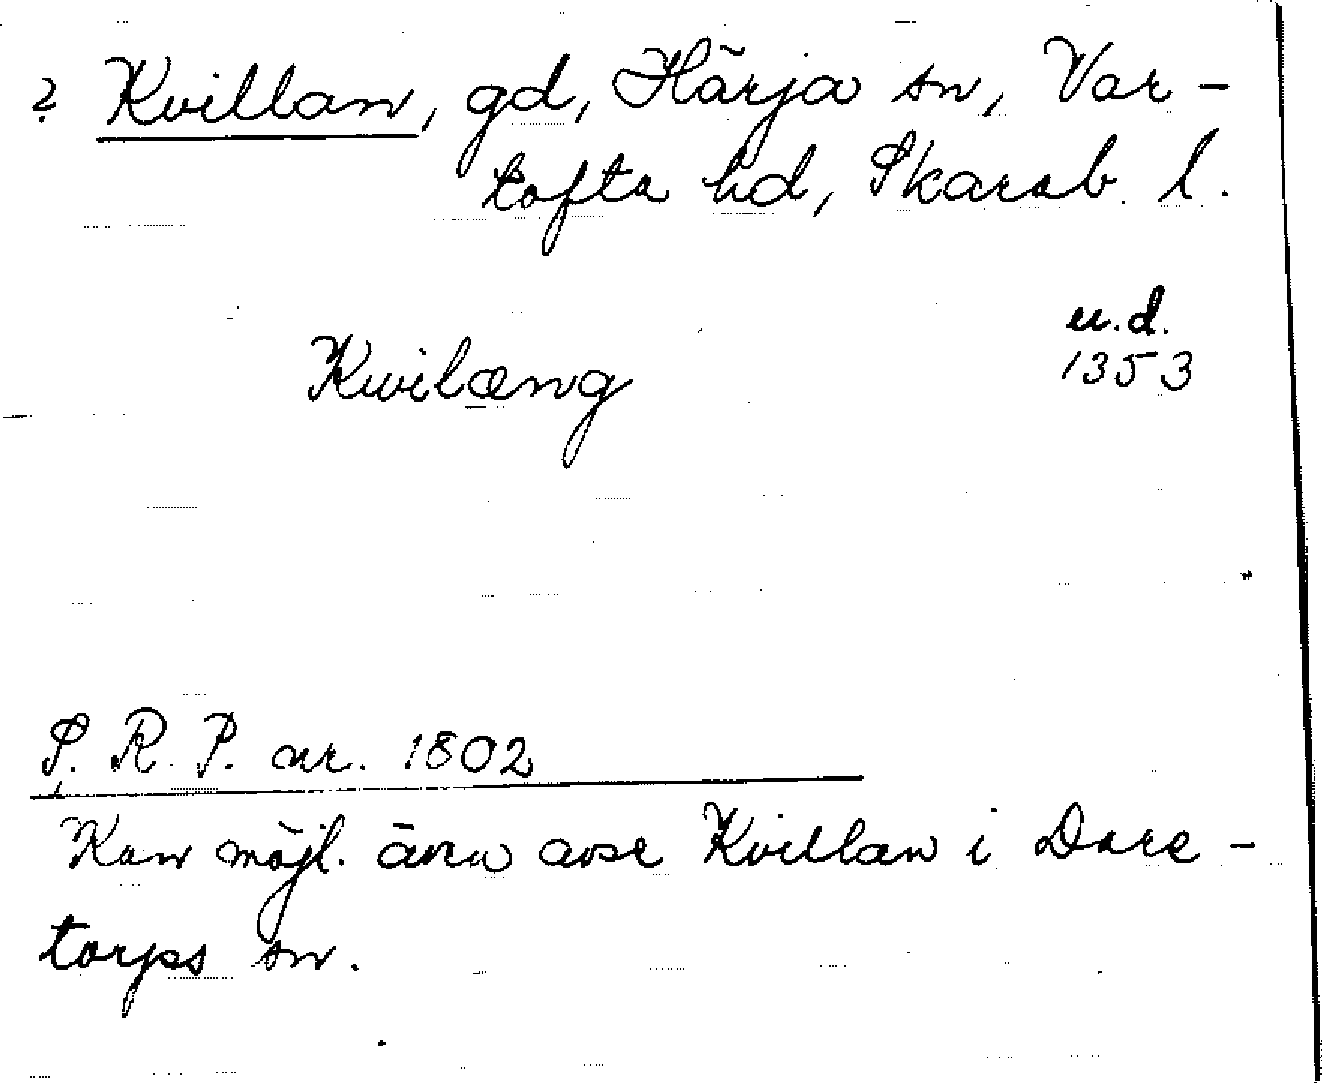 ? Kvillan, gd, Härja sn, Var-
tofta hd, Skarab. l.
u.d.
Kwilæng 1353
S. R. P. nr. 1802
Kan möjl. även avse Kvillan i Dare-
torps sn.